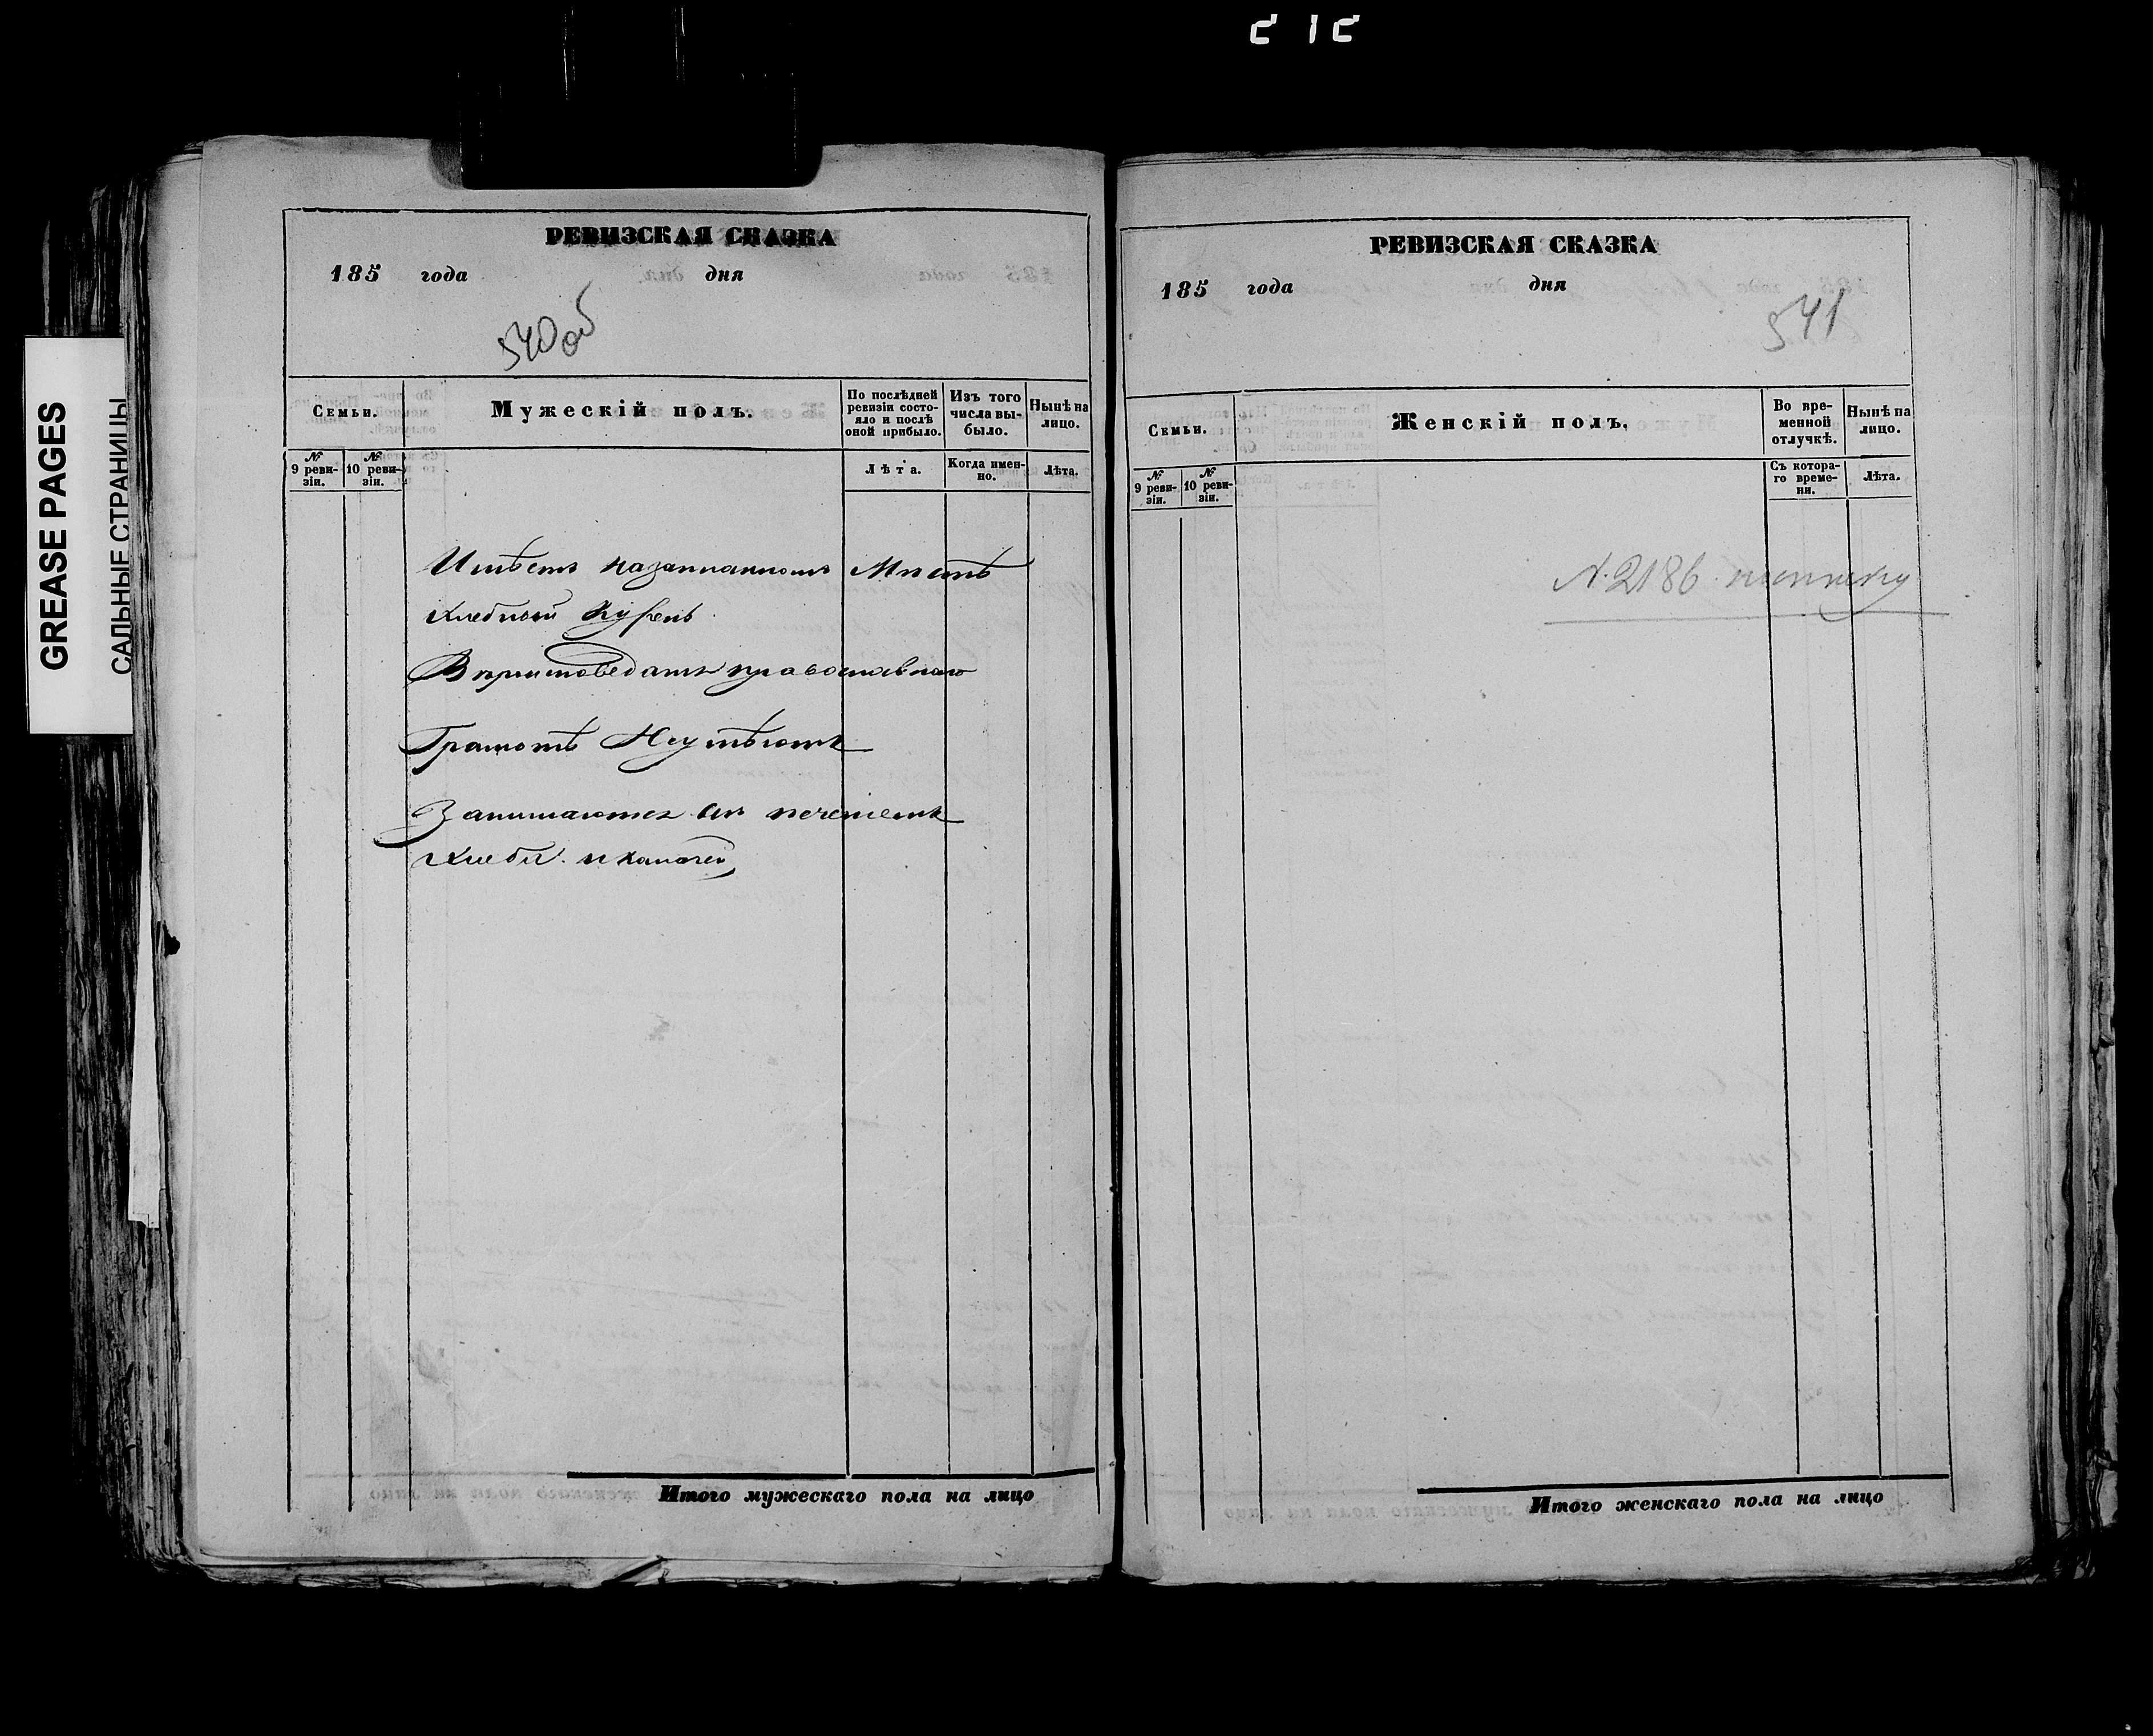 212
GREASE PAGES
САЛЬНЫЕ СТРАНИЦЫ
РЕВИЗСКАЯ СКАЗКА
185 года дня
540 об
Семьи.
Мужескій полъ.
По послѣдней ревизіи состояло и послѣ оной прибыло.
Изъ того числа выбыло.
Нынѣ на лицо.
№ 9 ревизіи.
№ 10 ревизіи.
Лѣта.
Когда именно.
Лѣта.
Имѣетъ Месте
хлебный Курень
православнаго
Грамотѣ Неумѣютъ
Занимаются печениемъ
хлеба и калачей
Итого мужескаго пола на лицо
РЕВИЗСКАЯ СКАЗКА
185 года дня
541
Семьи.
Женскій полъ.
Во временной отлучкѣ.
Нынѣ на лицо.
№ 9 ревизіи.
№ 10 ревизіи.
Съ котораго времени.
Лѣта.
N. 2186
Итого женскаго пола на лицо